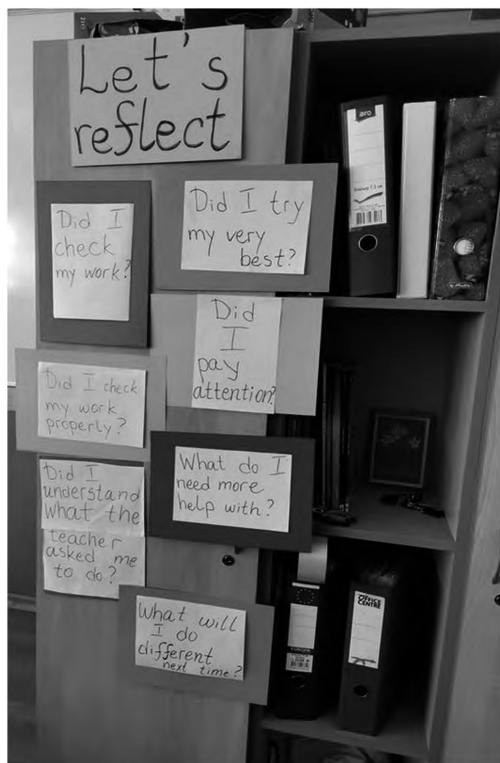 Let's
reflect
Did I
check
my work?
Did I try
my very
best?
Did
I
pay
attention?
Did I check
my work
properly?
What do I
need more
help with?
Did I
understand
what the
teacher
asked me
to do?
What will
I do
different
next time?
aro
OFFICE
CENTRE